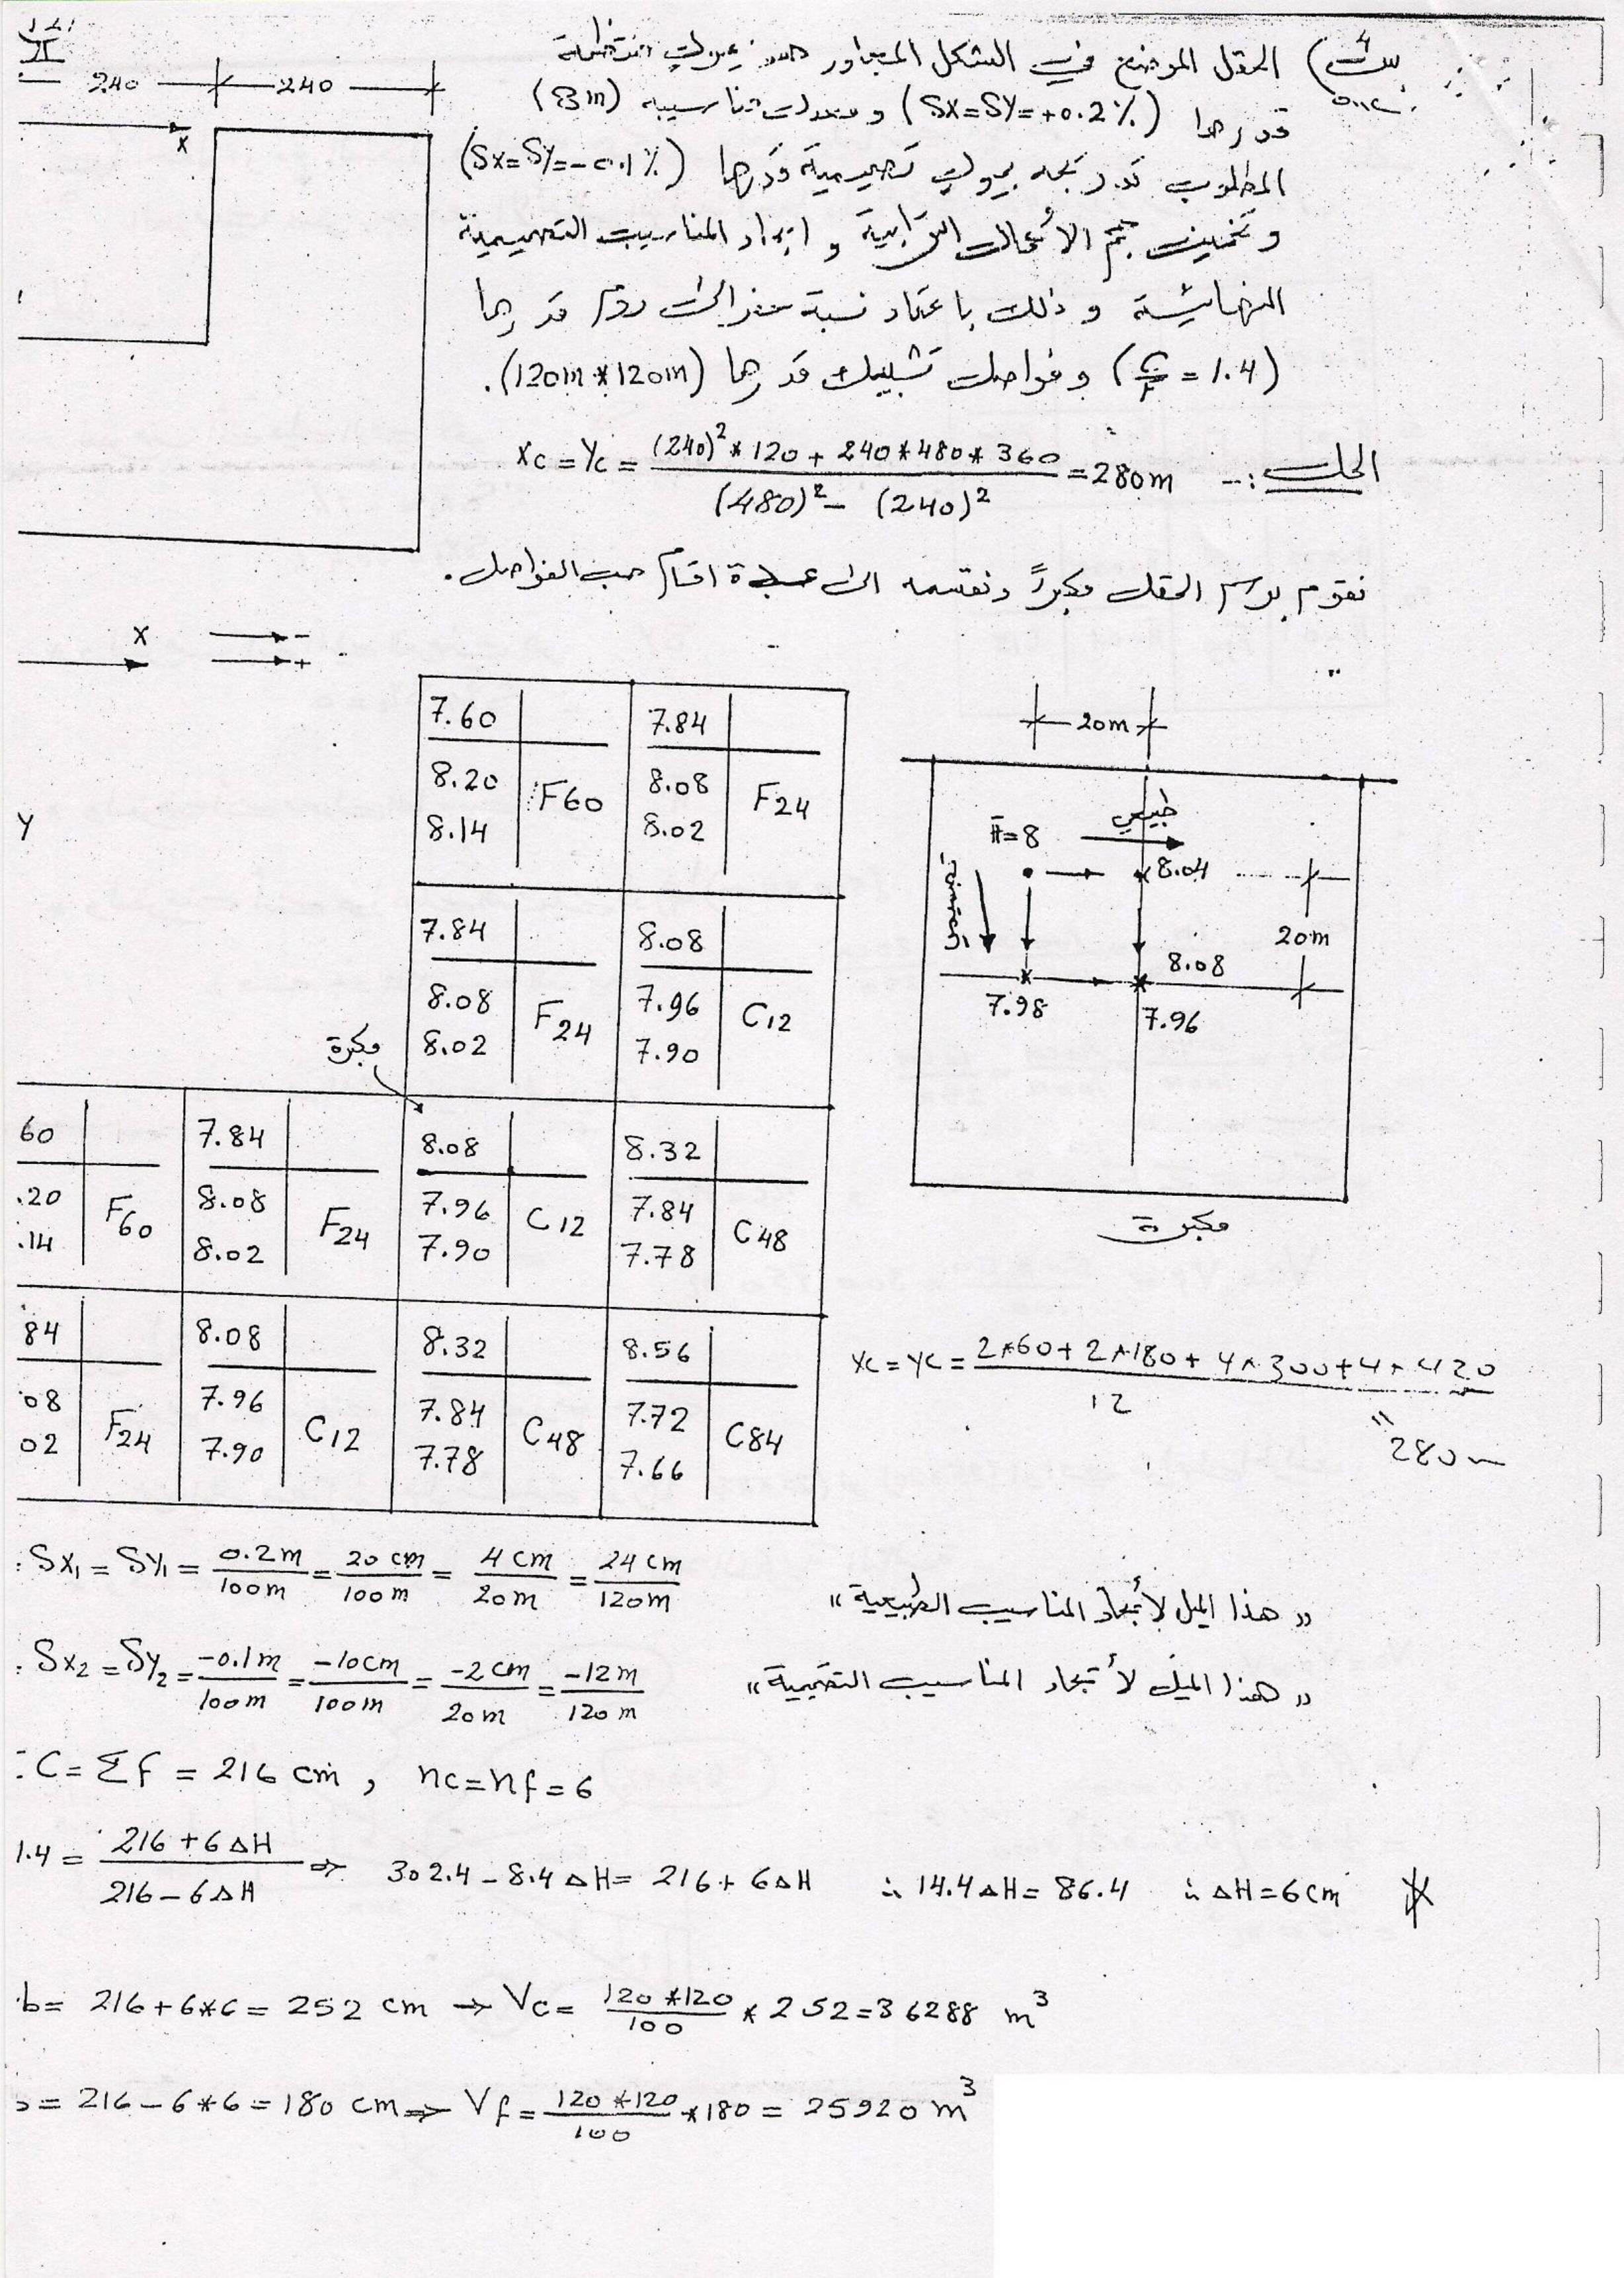 240 240
X
س4) الحقل الموضح في الشكل المجاور ميول منتظمة
قدرها (Sx=Sy=+0.2%) و معدل مناسيبه (8m)
المطلوب بميول تصميمية قدرها (Sx=Sy=-0.1%)
و تخمين حجم الأعمال الترابية و ايجاد المناسيب التصميمية
النهائية و ذلك باعتماد نسبة حفر الى ردم قدرها
(C/F = 1.4) و فواصل تشبيك قدرها (120m*120m).
الحل :- Xc = Yc = ((240)² * 120 + 240*480* 360) / ((480)² - (240)²) = 280m
نقوم برسم الحقل مكبراً ونقسمه الى عدة اقسام حسب الفواصل.
X → -
→ +
Y
7.60 7.84
8.20 F60 8.08 F24
8.14 8.02
7.84 8.08
8.08 F24 7.96 C12
8.02 7.90
مكبرة
60 7.84 8.08 8.32
.20 F60 8.08 F24 7.96 C12 7.84 C48
.14 8.02 7.90 7.78
84 8.08 8.32 8.56
08 F24 7.96 C12 7.84 C48 7.72 C84
02 7.90 7.78 7.66
20m
طبيعي
H̄=8
8.04
20m
8.08
7.98 7.96
مكبرة
Xc = Yc = (2*60+2*180+4*300+4*420) / 12
= 280m
: Sx₁ = Sy₁ = 0.2m/100m = 20 cm/100m = 4 cm/20m = 24 cm/120m
" هذا الميل لأيجاد المناسيب الطبيعية "
: Sx₂ = Sy₂ = -0.1m/100m = -10cm/100m = -2 cm/20m = -12m/120m
" هذا الميل لأيجاد المناسيب التصميمية "
: C = Σf = 216 cm , nc=nf=6
1.4 = (216 + 6ΔH) / (216 - 6ΔH) ⇒ 302.4 - 8.4 ΔH = 216 + 6ΔH ∴ 14.4ΔH = 86.4 ∴ ΔH = 6cm
= 216 + 6*6 = 252 cm → Vc = 120*120/100 * 252 = 36288 m³
= 216 - 6*6 = 180 cm ⇒ Vf = 120*120/100 * 180 = 25920 m³